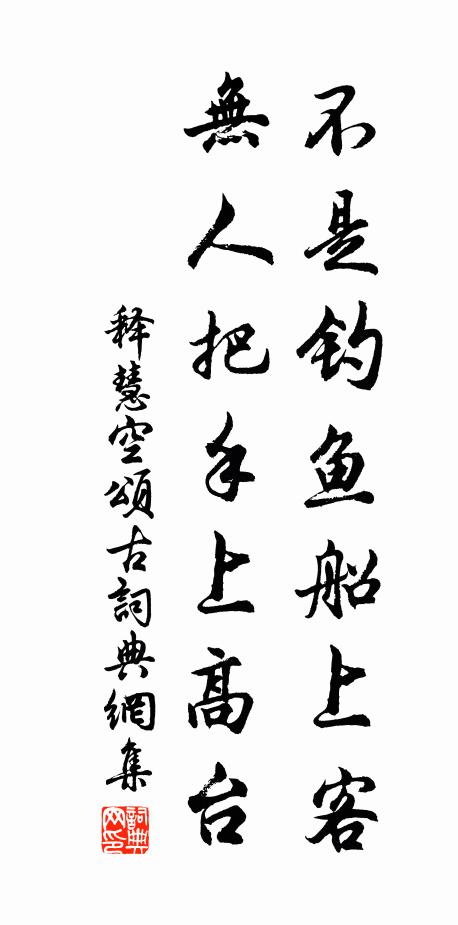 不是钓鱼船上客
無人把手上高台
释慧空頌古詞典網集
詞典网印